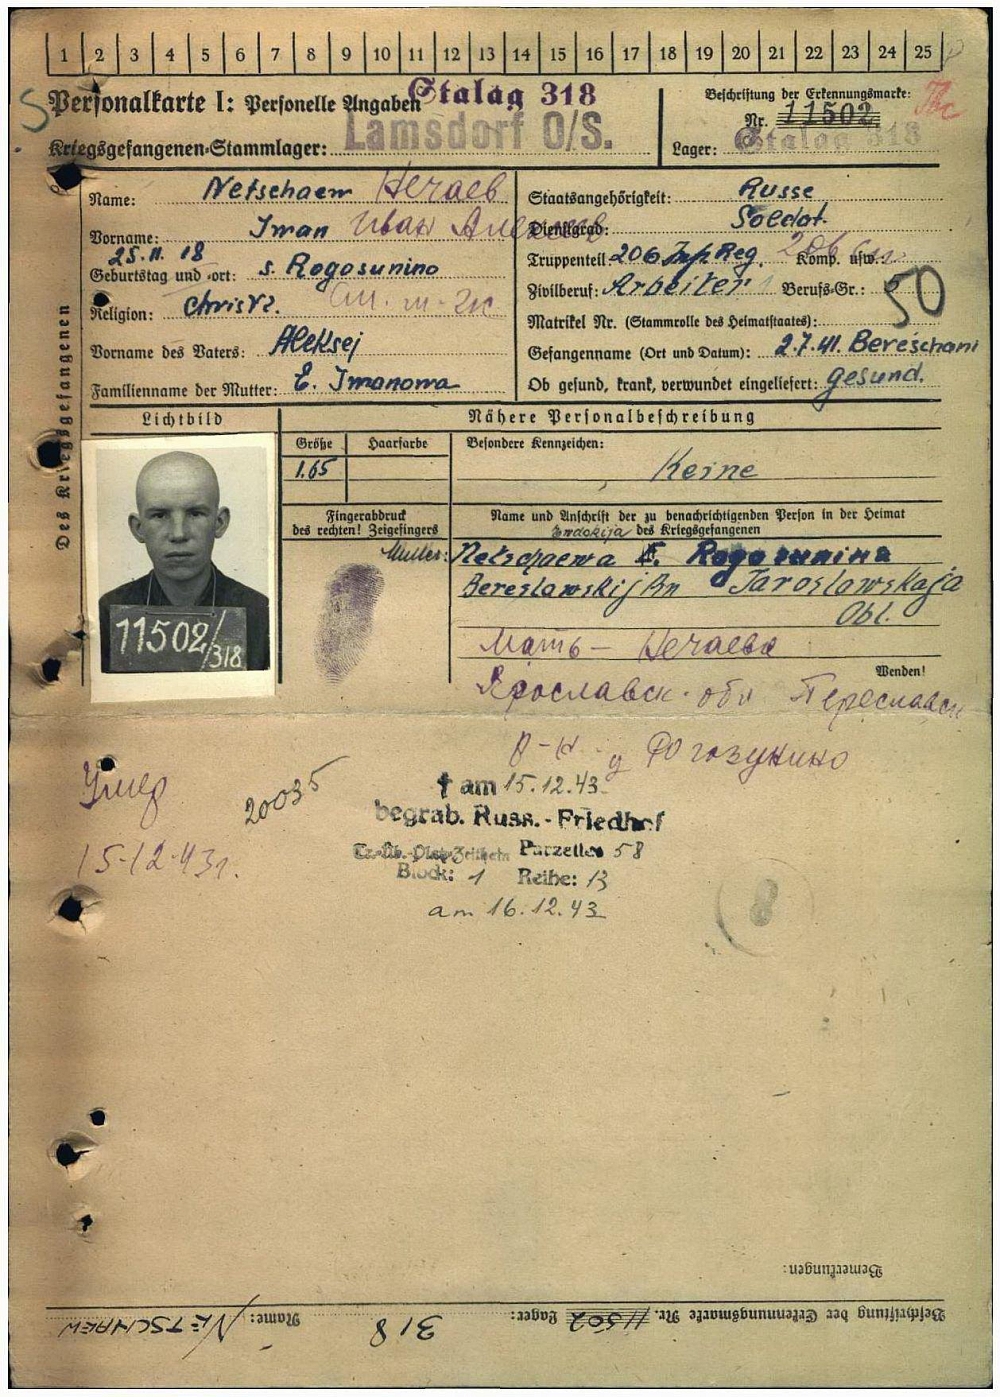 1 2 3 4 5 6 7 8 9 10 11 12 13 14 15 16 17 18 19 20 21 22 23 24 25
Personalkarte I: Personelle Angaben
Stalag 318
Kriegsgefangenen-Stammlager: Lamsdorf O/S.
Beschriftung der Erkennungsmarke:
Nr. 11502
Lager: Stalag 318
Des Kriegsgefangenen
Name: Netschaew Нечаев
Vorname: Iwan Иван Алексеев
Geburtstag und -ort: 25.11.18 s. Rogosunino
Religion: Christ.
Vorname des Vaters: Aleksej
Familienname der Mutter: E. Iwanowa
Staatsangehörigkeit: Russe
Dienstgrad: Soldat
Truppenteil: 206 Inf. Reg. Komp. usw.: 206
Zivilberuf: Arbeiter Berufs-Gr.:
50
Matrikel Nr. (Stammrolle des Heimatstaates):
Gefangenname (Ort und Datum): 2.7.41. Bereschani
Ob gesund, krank, verwundet eingeliefert: gesund.
Lichtbild
Nähere Personalbeschreibung
Größe Haarfarbe
1.65
Besondere Kennzeichen:
Keine
Fingerabdruck
des rechten! Zeigefingers
Name und Anschrift der zu benachrichtigenden Person in der Heimat
des Kriegsgefangenen
Ewdokija
Mutter: Netschaewa E. Rogosunina
Bereslawskij Rn Jaroslawskaja
Obl.
11502/318
Мать – Нечаева
Wenden!
Ярославск. обл Переславск
р-н д Рогозунино
Умер
15-12-43г.
20035
† am 15.12.43
begrab. Russ.-Friedhof
Tr.-Üb.-Platz Zeithain Parzelle: 58
Block: 1 Reihe: 13
am 16.12.43
8
Bemerkungen:
Beschriftung der Erkennungsmarke Nr. 11502 Lager: 318 Name: NETSCHAEW